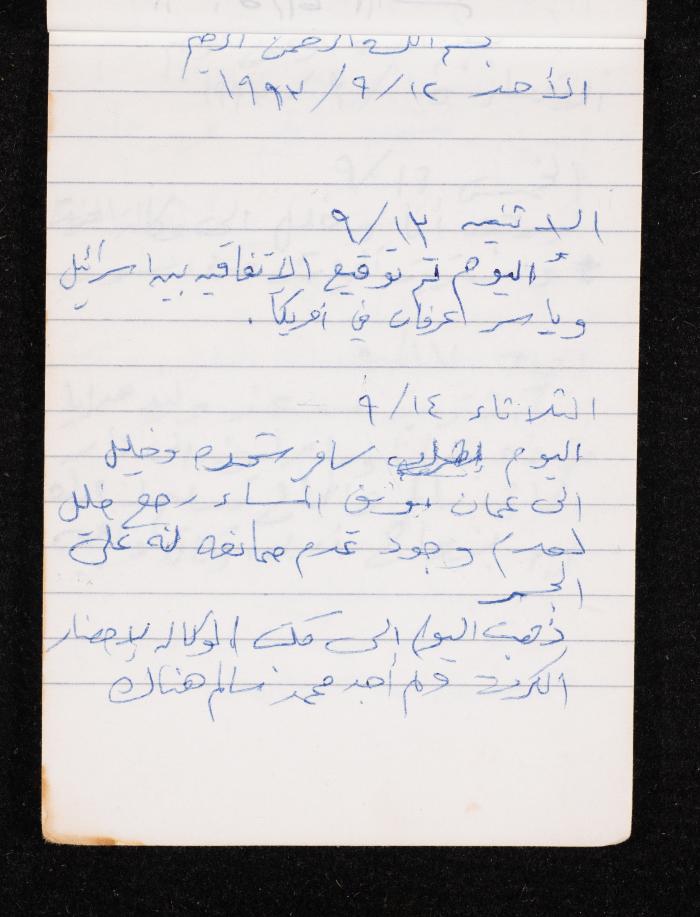 بسم الله الرحمن الرحيم
الأحد ١٢/٩/١٩٩٣
الاثنين ١٣/٩
اليوم تم توقيع الاتفاقيه بين اسرائيل
وياسر عرفات في امريكا.
الثلاثاء ١٤/٩
اليوم سافر شحده وخليل
الى عمان المساء رجع خليل
لعدم وجود عدم ممانعه له على
الجسر
ذهبت اليوم الى الوكاله لإحضار
الكرت ولم أجد محمد سالم هناك